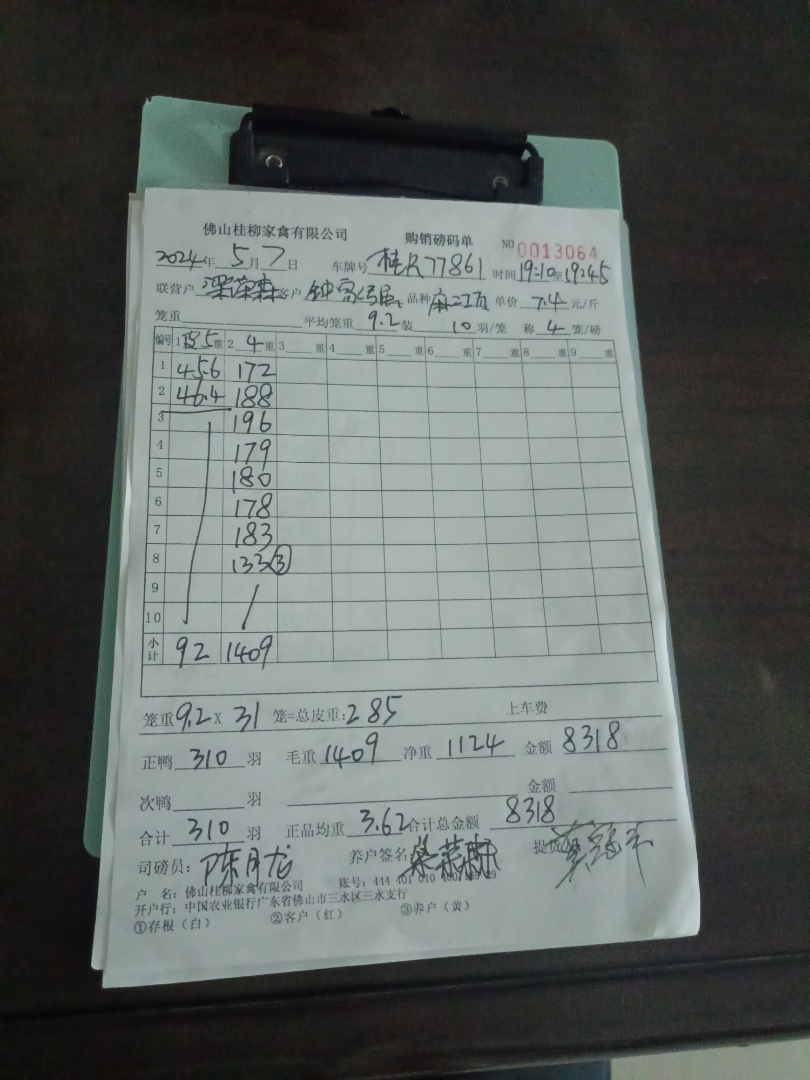 佛山桂柳家禽有限公司 购销磅码单 NO 0013064
2024年 5月 7日 车牌号 桂R77861 时间 19:10至19:45
联营户 客户 品种 单价 7.4 元/斤
笼重 平均笼重 9.2 装 10 羽/笼 称 4 笼/磅
编号 1 皮5重 2 4重 3 重 4 重 5 重 6 重 7 重 8 重 9 重
1 45.6 172
2 46.4 188
3 196
4 179
5 180
6 178
7 183
8 133③
9
10
小计 92 1409
笼重 9.2 X 31 笼=总皮重: 285 上车费
正鸭 310 羽 毛重 1409 净重 1124 金额 8318
次鸭 羽 金额
合计 310 羽 正品均重 3.62 合计总金额 8318
司磅员: 陈月龙 养户签名 提货
户 名: 佛山桂柳家禽有限公司 账号: 444 401 010 400
开户行: 中国农业银行广东省佛山市三水区三水支行
①存根(白) ②客户(红) ③养户(黄)